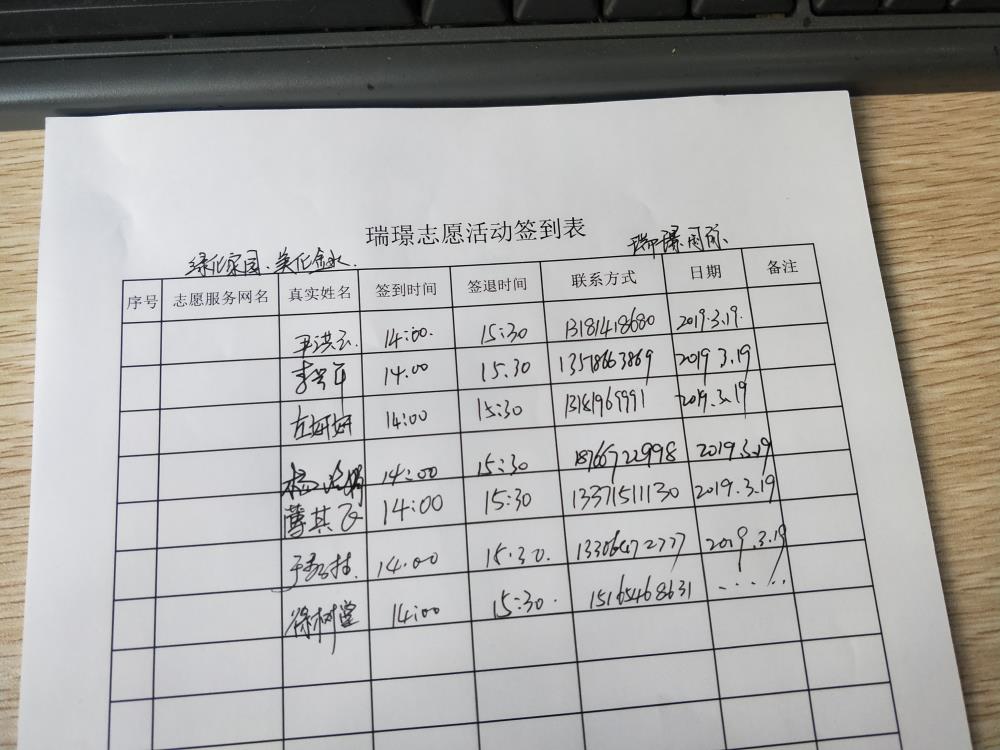 瑞璟志愿活动签到表
绿化家园、美化金水. 瑞璟国际
序号 志愿服务网名 真实姓名 签到时间 签退时间 联系方式 日期 备注
尹洪云 14:00. 15:30 13181418680 2019.3.19.
14.00 15.30 13518663869 2019.3.19
左妍妍 14:00 15:30 13181969991 2019.3.19
14:00 15:30 18766722998 2019.3.19
薛其飞 14:00 15:30 13371511130 2019.3.19
14.00 15.30. 13306472777 2019.3.19
徐树堂 14:00 15:30. 15165468631 ......